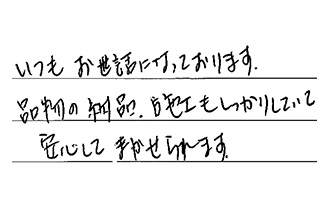 いつもお世話になっております.
品物の納品.施工もしっかりしていて
安心してまかせられます.